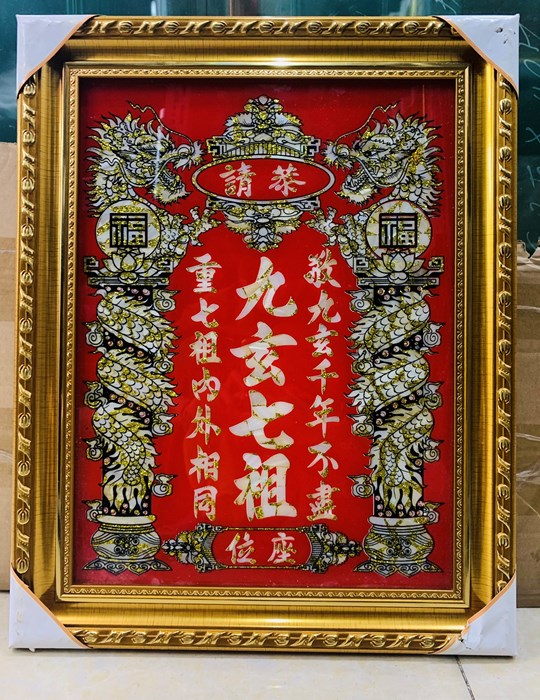 恭請
敬九玄千年不盡
九玄七祖
重七祖內外相同
座位
福
福